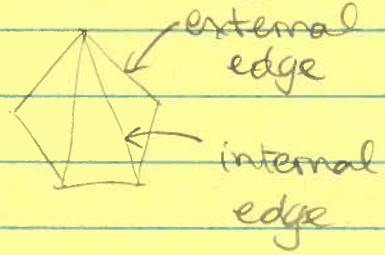 external
edge
internal
edge